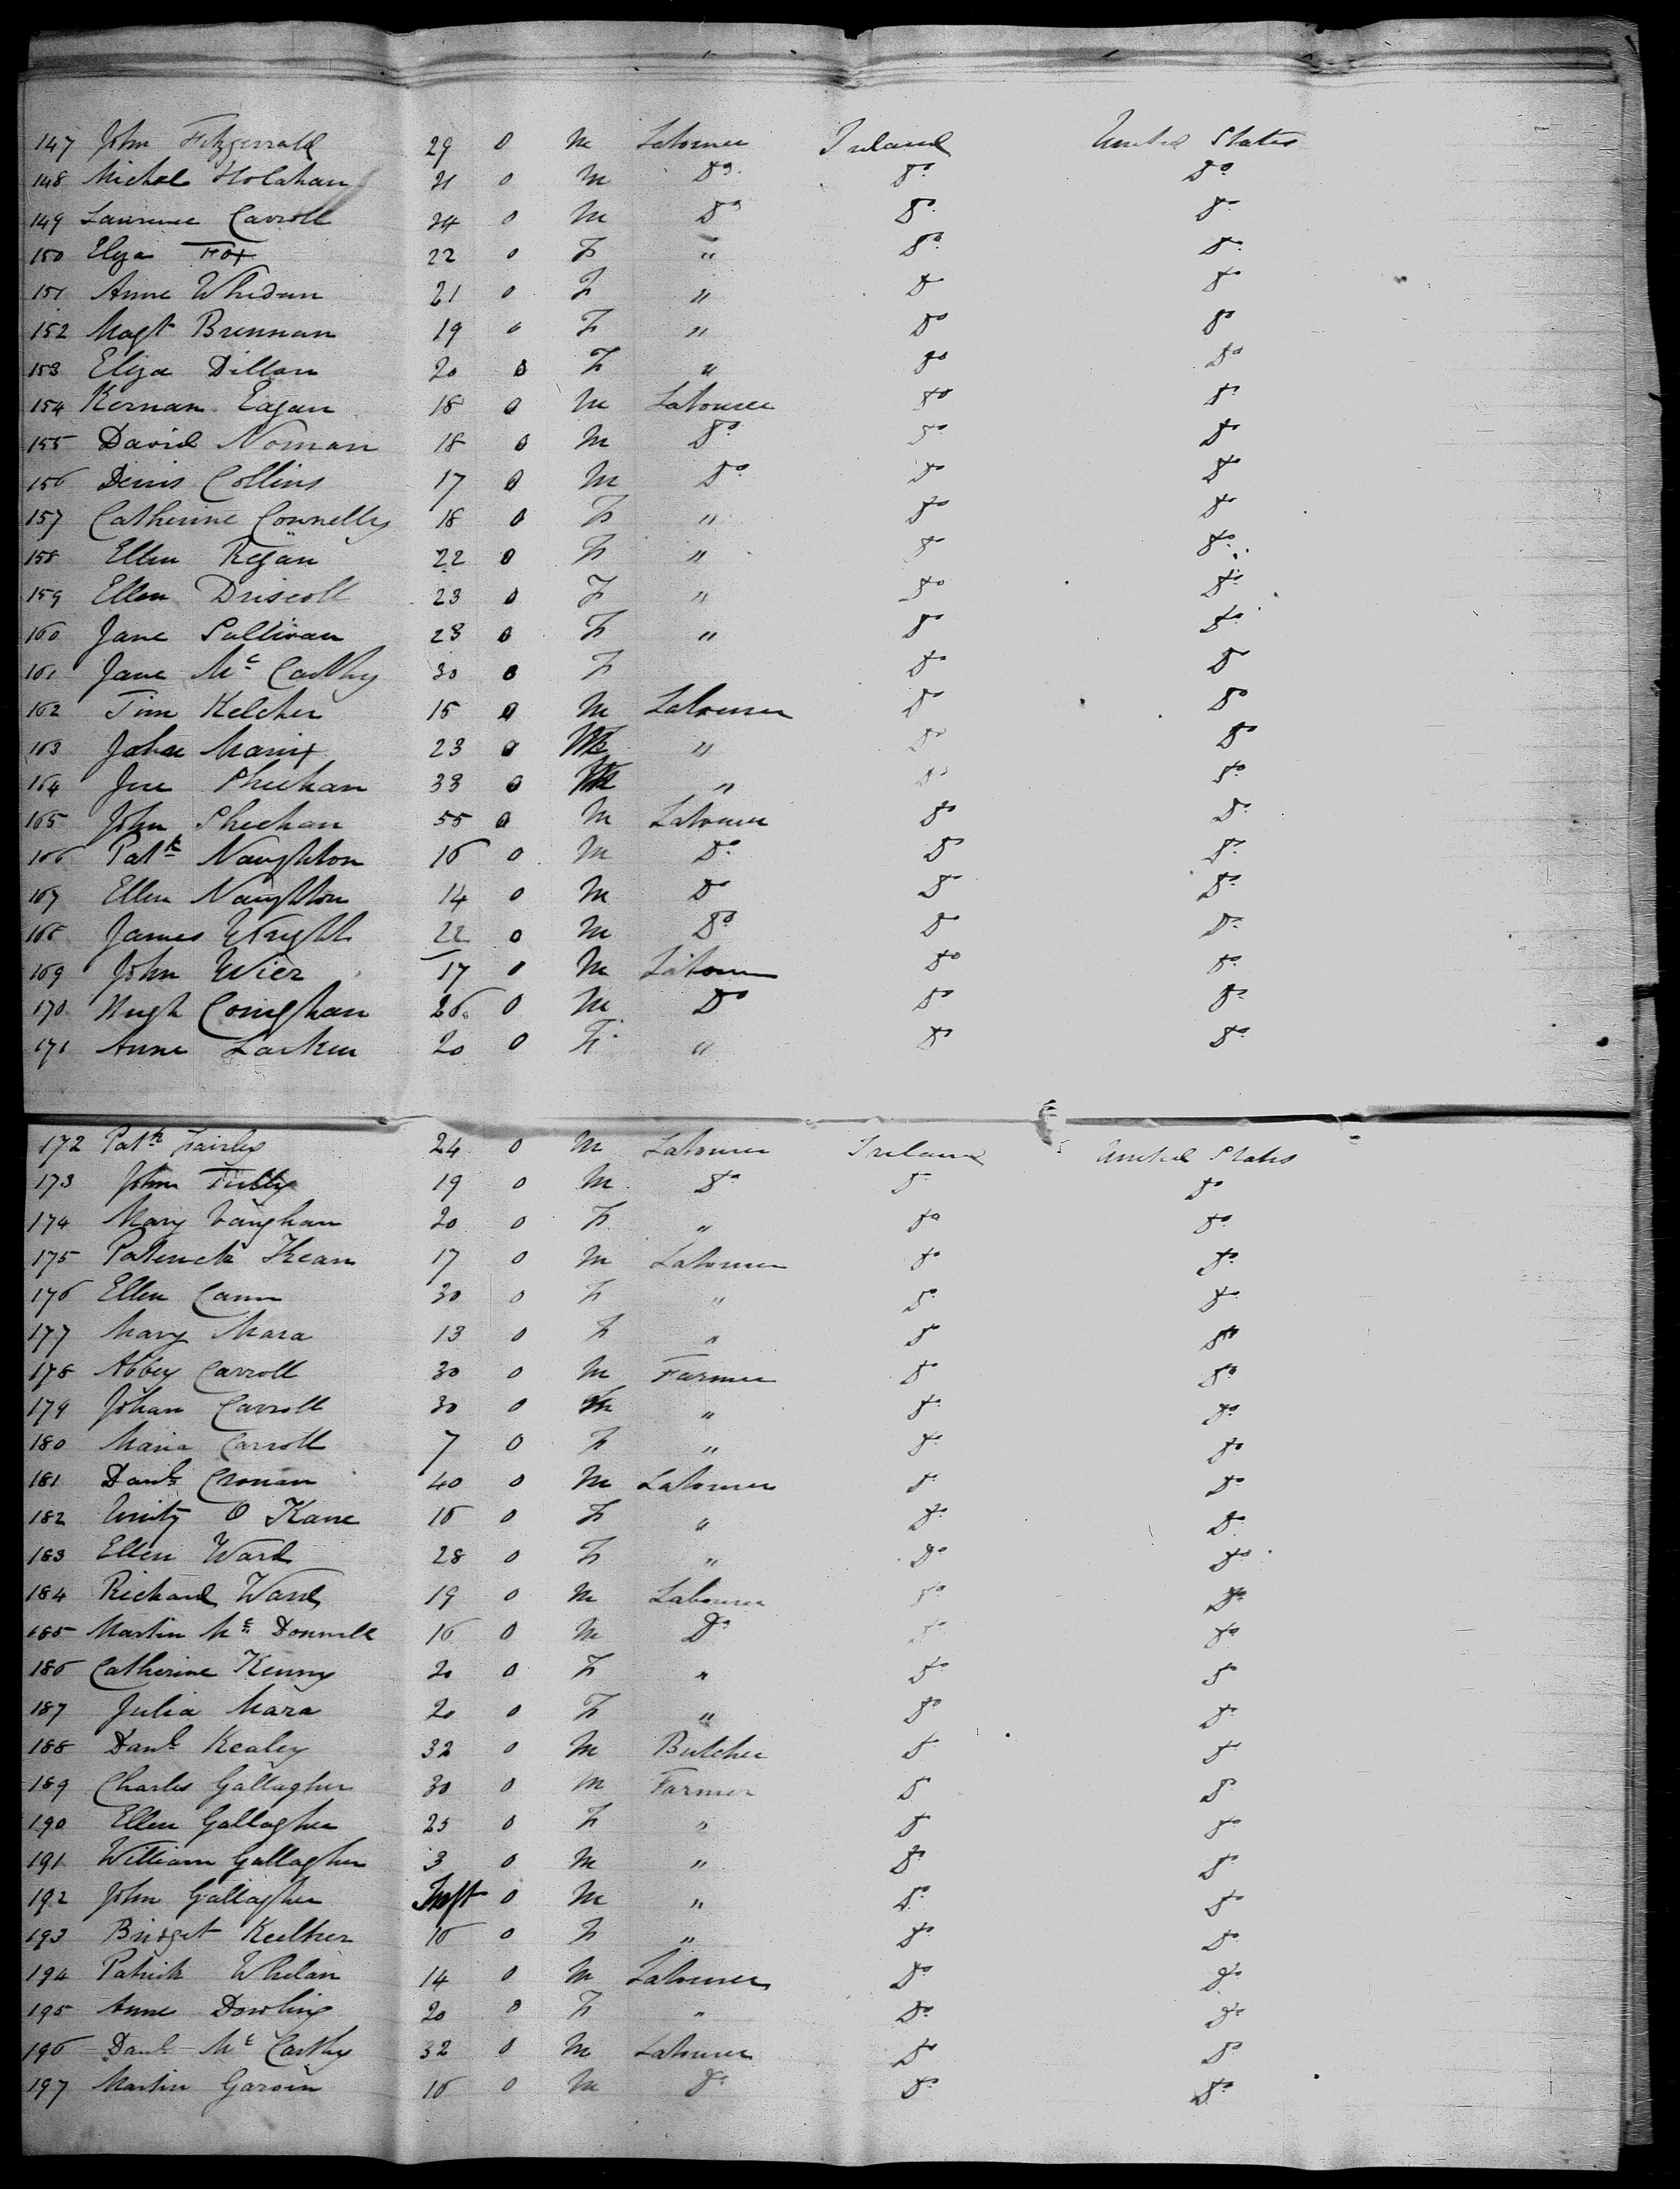 147 John Fitzgerrald 29 0 M Labourer Ireland United States
148 Michal Holahan 21 0 M Do Do Do
149 Laurence Carroll 24 0 M Do Do Do
150 Eliza Fox 22 0 F " Do Do
151 Anne Whedun 21 0 F " Do Do
152 Magt Brennan 19 0 F " Do Do
153 Eliza Dillon 20 0 F " Do Do
154 Kernan Eagan 18 0 M Labourer Do Do
155 David Noman 18 0 M Do Do Do
156 Denis Collins 17 0 M Do Do Do
157 Catherine Connelly 18 0 F " Do Do
158 Ellen Regan 22 0 F " Do Do
159 Ellen Driscoll 23 0 F " Do Do
160 Jane Sullivan 23 0 F " Do Do
161 Jane Mc Carthy 30 0 F Do Do
162 Tim Kelcher 15 0 M Labourer Do Do
163 Manix 23 0 " Do Do
164 Sheehan 33 0 " Do Do
165 John Sheehan 55 0 M Labourer Do Do
166 Patk Naughton 16 0 M Do Do Do
167 Ellen Naughton 14 0 M Do Do Do
168 James Wright 22 0 M Do Do Do
169 John Wier 17 0 M Labourer Do Do
170 Hugh Conighan 26 0 M Do Do Do
171 Anne Larkin 20 0 F " Do Do
172 Patk Fairley 24 0 M Labourer Ireland United States
173 John Tully 19 0 M Do Do Do
174 Mary Vaughan 20 0 F " Do Do
175 Paterick Kean 17 0 M Labourer Do Do
176 Ellen Cann 30 0 F " Do Do
177 Mary Mara 13 0 F " Do Do
178 Abbey Carroll 30 0 M Farmer Do Do
179 Johan Carroll 30 0 " Do Do
180 Maria Carroll 7 0 F " Do Do
181 Danl Cronan 40 0 M Labourer Do Do
182 Unity O Kane 16 0 F " Do Do
183 Ellen Ward 28 0 F " Do Do
184 Richard Ward 19 0 M Labourer Do Do
185 Martin Mc Donnell 16 0 M Do Do Do
186 Catherine Kenny 20 0 F " Do Do
187 Julia Mara 20 0 F " Do Do
188 Danl Kealey 32 0 M Butcher Do Do
189 Charles Gallagher 30 0 M Farmer Do Do
190 Ellen Gallagher 25 0 F " Do Do
191 William Gallagher 3 0 M " Do Do
192 John Gallagher Inft 0 M " Do Do
193 Bridget Keelher 16 0 F " Do Do
194 Patrick Whelan 14 0 M Labourer Do Do
195 Anne Dowling 20 0 F " Do Do
196 Danl Mc Carthy 32 0 M Labourer Do Do
197 Martin Garvin 16 0 M Do Do Do